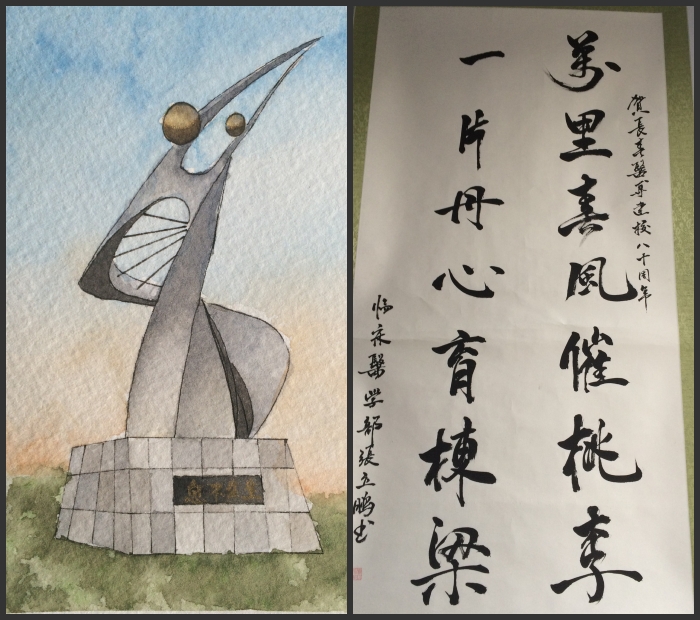 賀長春醫專建校八十周年
萬里春風催桃李
一片丹心育棟梁
临床醫学部張立鹏书